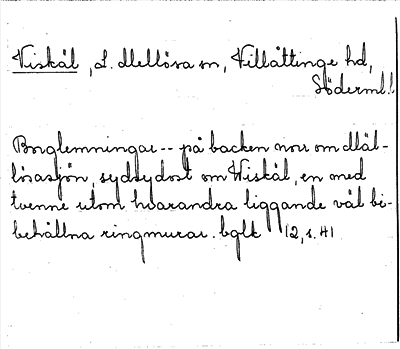 Viskål, L. Mellösa sn, Villåttinge hd,
Söderml. l.
Borglemningar -- på backen norr om Mäl-
lösasjön, sydsydost om Wiskål, en med
tvenne utom hvarandra liggande väl bi-
behållna ringmurar. bglk 12, s. 41